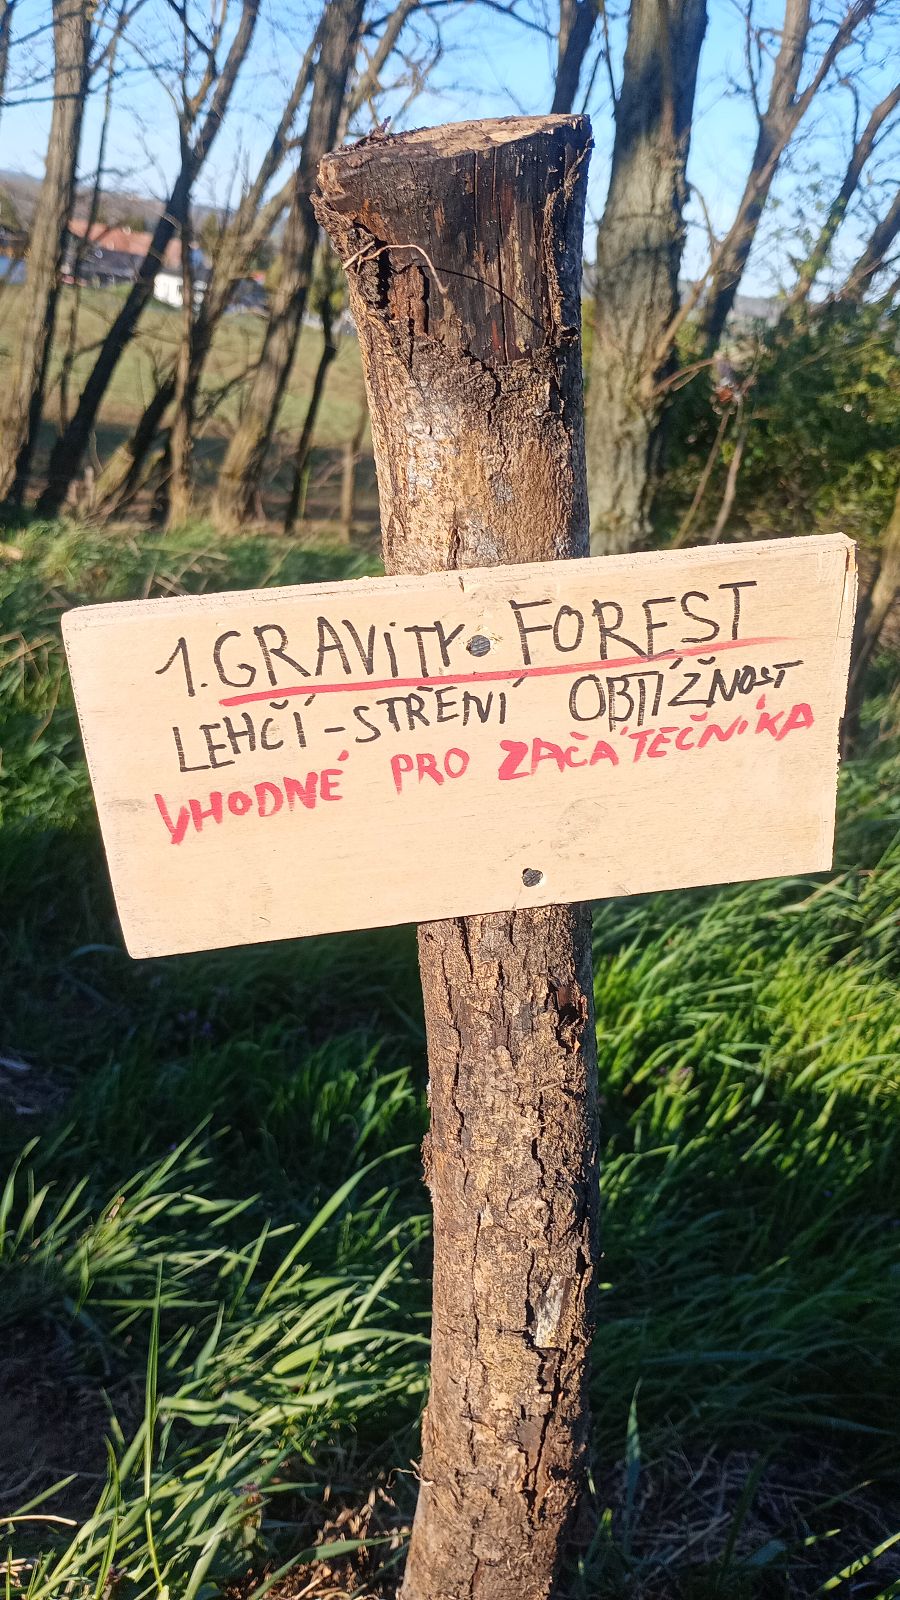 1. GRAVITY FOREST
LEHČÍ-STŘENÍ OBTÍŽNOST
VHODNÉ PRO ZAČÁTEČNÍKA